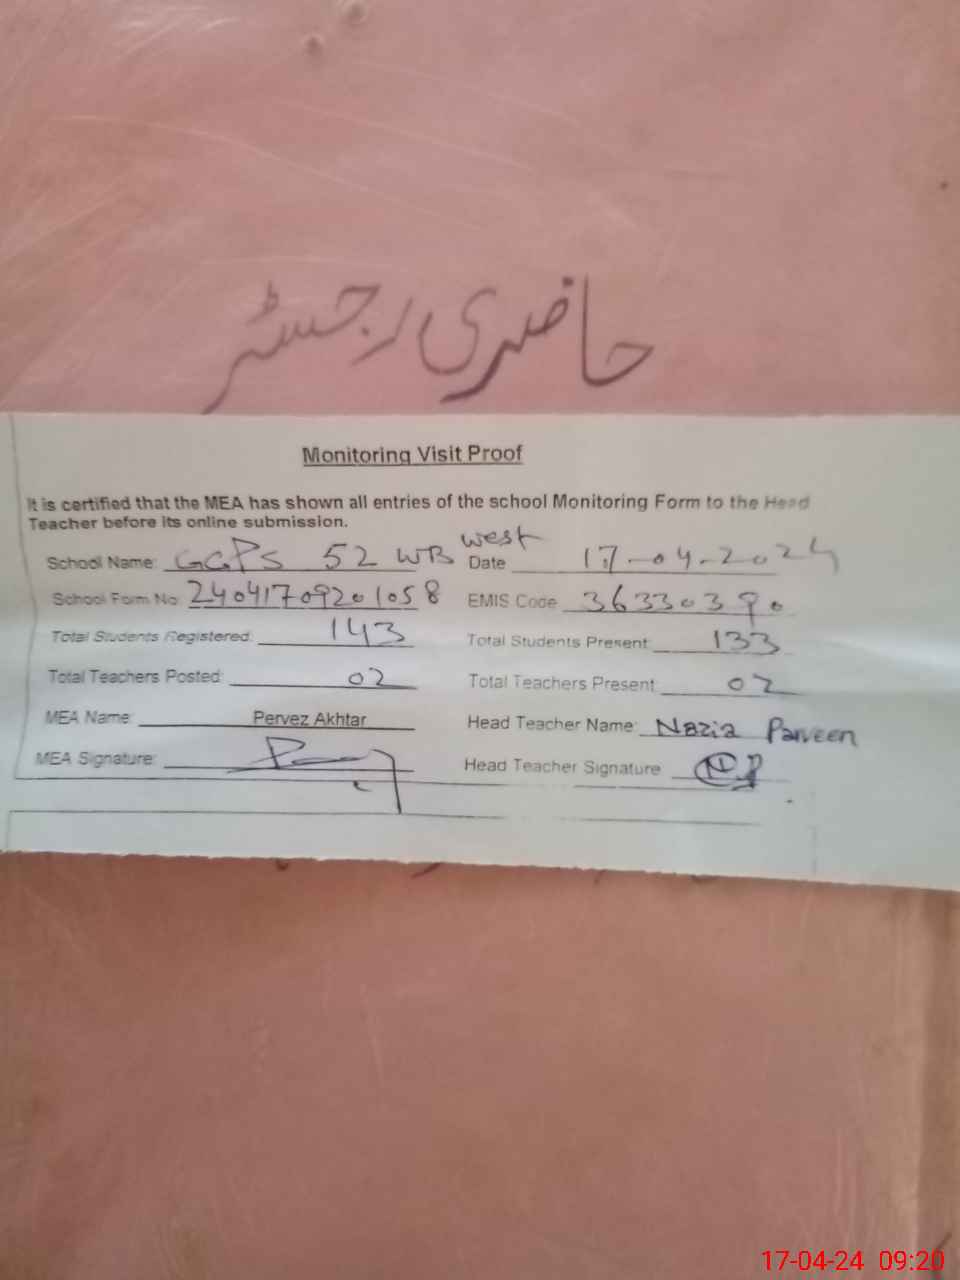 حاضری رجسٹر
Monitoring Visit Proof
It is certified that the MEA has shown all entries of the school Monitoring Form to the Head
Teacher before its online submission.
School Name: GGPS 52 WB west Date 17-04-2024
School Form No: 2404170920 1058 EMIS Code 36330390
Total Students Registered: 143 Total Students Present: 133
Total Teachers Posted: 02 Total Teachers Present: 02
MEA Name: Pervez Akhtar Head Teacher Name: Nazia Parveen
MEA Signature: Head Teacher Signature
17-04-24 09:20